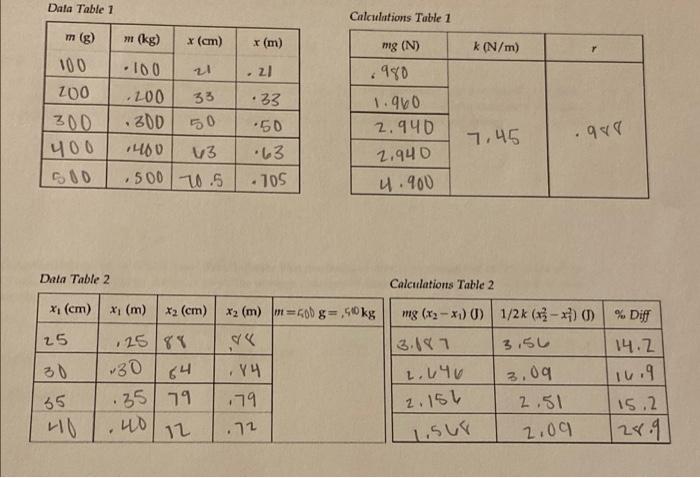 Data Table 1
m (g) m (kg) x (cm) x (m)
100 .100 21 .21
200 .200 33 .33
300 .300 50 .50
400 .400 63 .63
500 .500 70.5 .705
Calculations Table 1
mg (N) k (N/m) r
.980
1.960
2.940 7.45 .988
2.940
4.900
Data Table 2
x₁ (cm) x₁ (m) x₂ (cm) x₂ (m) m = 500 g = .500 kg
25 .25 88 .88
30 .30 84 .84
35 .35 79 .79
40 .40 72 .72
Calculations Table 2
mg (x₂ − x₁) (J) 1/2k (x₂² − x₁²) (J) % Diff
3.187 3.56 14.2
2.646 3.09 16.9
2.156 2.51 15.2
1.568 2.09 28.9